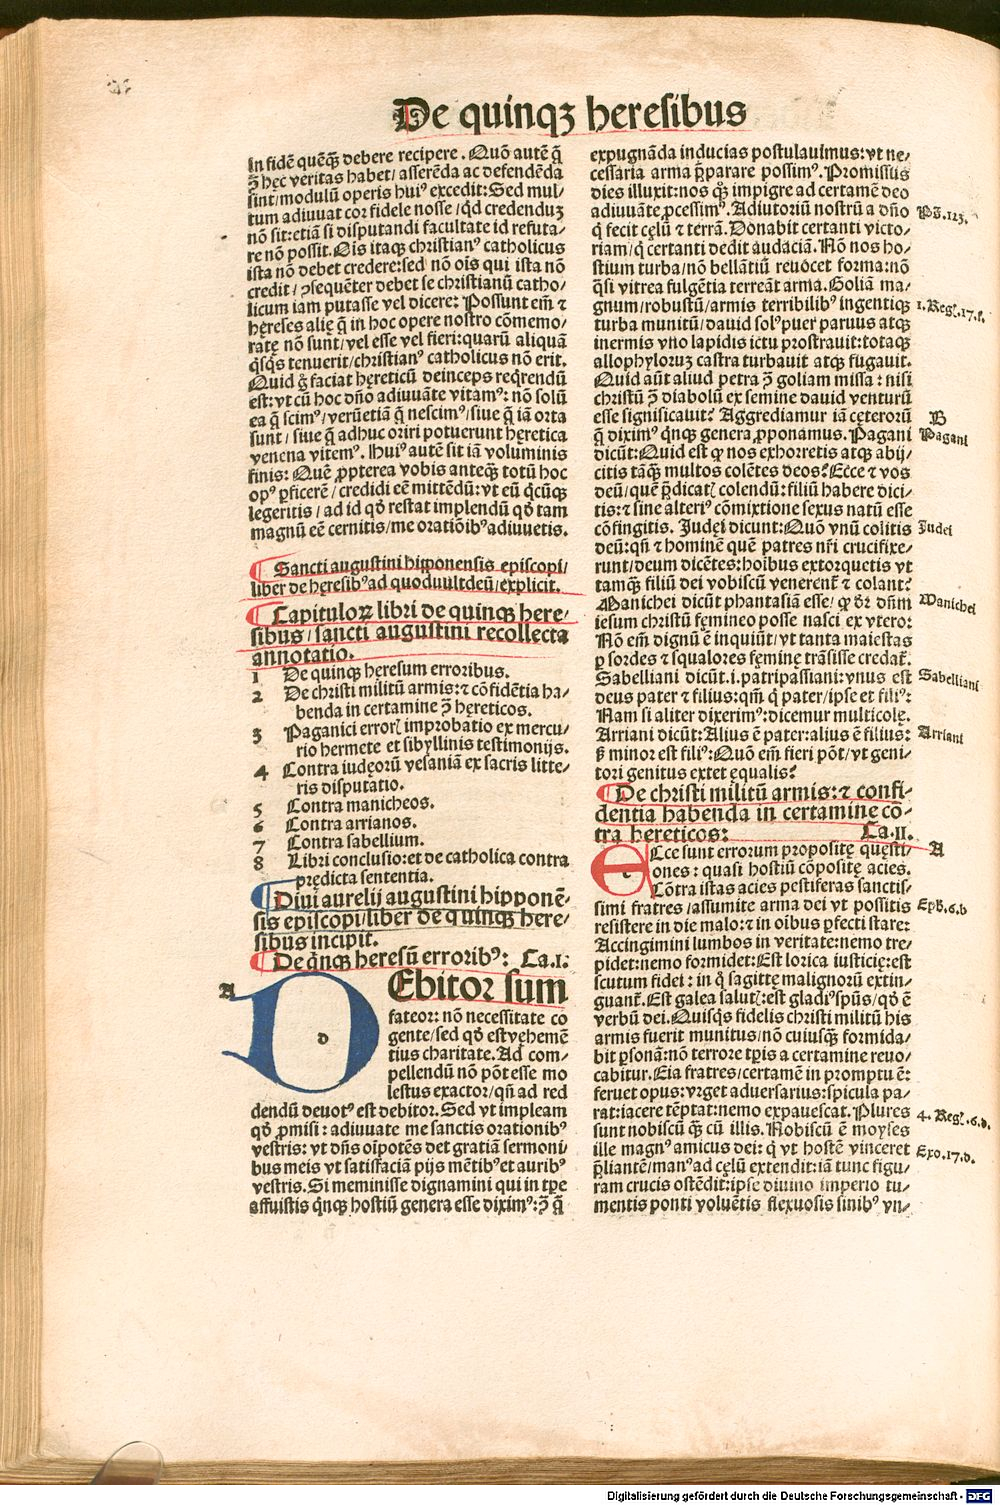 De quinqꝫ heresibus
in fidē quēq̄ȝ debere recipere. Quō autē q̄
ꝯ̄ hęc veritas habet/ asserēda ac defendēda
sint/modulū operis huiꝰ excedit: Sed mul-
tum adiuuat cor fidele nosse/ qd̓ credenduȝ
nō sit: etiā si disputandi facultate id refuta-
re nō possit. Oīs itaqȝ christianꝰ catholicus
ista nō debet credere: sed nō oīs qui ista nō
credit/ ꝯsequēter debet se christianū catho/
licum iam putasse vel dicere: Possunt em̄ ⁊
hęreses alię q̄ in hoc opere nostro cōmemo/
ratę nō sunt/ vel esse vel fieri: quarū aliquā
q̓sq̓s tenuerit/ christianꝰ catholicus nō erit.
Quid g̓ faciat hęreticū deinceps req̓rendū
est: vt cū hoc dn̄o adiuuāte vitamꝰ: nō solū
ea q̄ scimꝰ/ verūetiā q̄ nescimꝰ/ siue q̄ iā orta
sunt/ siue q̄ adhuc oriri potuerunt hęretica
venena vitemꝰ. Huiꝰ autē sit iā voluminis
finis: Quē ꝓpterea vobis anteqȝ totū hoc
opꝰ ꝑficerē/ credidi eē mittēdū: vt eū q̓cūqȝ
legeritis/ ad id qd̓ restat implendū qd̓ tam
magnū eē cernitis/ me oratiōibꝰ adiuuetis.
Sancti augustini hipponensis episcopi/
liber de hęresibꝰ ad quoduultdeū/ explicit.
Capitulorꝝ libri de quinqȝ here/
sibus/ sancti augustini recollecta
annotatio.
1 De quinqȝ hęresum erroribus.
2 De christi militū armis: ⁊ cōfidētia ha/
benda in certamine ꝯ̄ hęreticos.
3 Paganici errorꝭ improbatio ex mercu/
rio hermete et sibyllinis testimonijs.
4 Contra iudęorū vesaniā ex sacris litte/
ris disputatio.
5 Contra manicheos.
6 Contra arrianos.
7 Contra sabellium.
8 Libri conclusio: et de catholica contra
prędicta sententia.
Diui aurelij augustini hipponē-
sis episcopi/ liber de quinqȝ here/
sibus incipit.
De q̓nqȝ heresū erroribꝰ: Ca.I.
A
DEbitor sum
fateor: nō necessitate co
gente/ sed qd̓ est vęhemē
tius charitate. Ad com/
pellendū nō pōt esse mo
lestus exactor/ qn̄ ad red
dendū deuotꝰ est debitor. Sed vt impleam
qd̓ ꝓmisi: adiuuate me sanctis orationibꝰ
vestris: vt dn̄s oīpotēs det gratiā sermoni
bus meis vt satisfaciā pijs mētibꝰ et auribꝰ
vestris. Si meminisse dignamini qui in tꝑe
affuistis q̓nqȝ hostiū genera esse diximꝰ: ꝯ̄ q̄
expugnāda inducias postulauimus: vt ne/
cessaria arma p̄parare possimꝰ. Promissus
dies illuxit: nos qȝ impigre ad certamē deo
adiuuāte ꝓcessimꝰ. Adiutoriū nostrū a dn̄o
q̓ fecit cęlū ⁊ terrā. Donabit certanti victo/
riam/ q̓ certanti dedit audaciā. Nō nos ho/
stium turba/ nō bellātiū reuocet forma: nō
q̓si vitrea fulgētia terreāt arma. Goliā ma/
gnum/ robustū/ armis terribilibꝰ ingentiqȝ
turba munitū/ dauid solꝰ puer paruus atqȝ
inermis vno lapidis ictu prostrauit: totaqȝ
allophyloruȝ castra turbauit atqȝ fugauit.
Quid aūt aliud petra ꝯ̄ goliam missa: nisi
christū ꝯ̄ diabolū ex semine dauid venturū
esse significauit? Aggrediamur iā cęterorū
q̄ diximꝰ q̓nqȝ genera ꝓponamus. Pagani
dicūt: Quid est qȝ nos exhorretis atqȝ abij/
citis tāqȝ multos colētes deos? Ecce ⁊ vos
deū/ quē p̄dicatꝭ colendū: filiū habere dici/
tis: ⁊ sine alteriꝰ cōmixtione sexus natū esse
cōfingitis. Judęi dicunt: Quō vnū colitis
deū: qn̄ ⁊ hominē quē patres nr̄i crucifixe/
runt/ deum dicētes: hoībus extorquetis vt
tamqȝ filiū dei vobiscū venerent̄ ⁊ colant?
Manichei dicūt phantasiā esse/ qȝ dr̄ dn̄m
iesum christū fęmineo posse nasci ex vtero:
Nō em̄ dignū ē inquiūt/ vt tanta maiestas
ꝑ sordes ⁊ squalores fęminę trāsisse credat̄.
Sabelliani dicūt .i. patripassiani: vnus est
deus pater ⁊ filius: qm̄ q̓ pater/ ipse et filiꝰ:
Nam si aliter dixerimꝰ: dicemur multicolę.
Arriani dicūt: Alius ē pater: alius ē filius:
ꝫ minor est filiꝰ: Quō em̄ fieri pōt/ vt geni/
tori genitus extet ęqualis?
De christi militū armis: ⁊ confi/
dentia habenda in certamine cō-
tra hereticos: Ca.II.
Ecce sunt errorum propositę quęsti/
ones: quasi hostiū cōpositę acies.
Cōtra istas acies pestiferas sanctis/
simi fratres/ assumite arma dei vt possitis
resistere in die malo: ⁊ in oībus ꝑfecti stare:
Accingimini lumbos in veritate: nemo tre/
pidet: nemo formidet: Est lorica iusticię: est
scutum fidei: in q̓ sagittę malignorū extin/
guant̄. Est galea salutꝭ: est gladiꝰ spūs/ qd̓ ē
verbū dei. Quisq̓s fidelis christi militū his
armis fuerit munitus/ nō cuiusqȝ formida/
bit ꝑsonā: nō terrore tꝑis a certamine reuo/
cabitur. Eia fratres/ certamē in promptu ē:
feruet opus: vrget aduersarius: spicula pa/
rat: iacere tēptat: nemo expauescat. Plures
sunt nobiscū qȝ cū illis. Nobiscū ē moyses
ille magnꝰ amicus dei: q̓ vt hostē vinceret
p̄liantē/ manꝰ ad cęlū extendit: iā tunc figu/
ram crucis ostēdit: ipse diuino imperio tu/
mentis ponti voluētis flexuosis sinibꝰ vn/
Ps̄.123.
1. Regꝭ.17.f.
B
Pagani
Judei
Manichei
Sabelliani
Arriani
A
Eph.6.b
4. Regꝭ.6.d.
Exo.17.d.
Digitalisierung gefördert durch die Deutsche Forschungsgemeinschaft - DFG